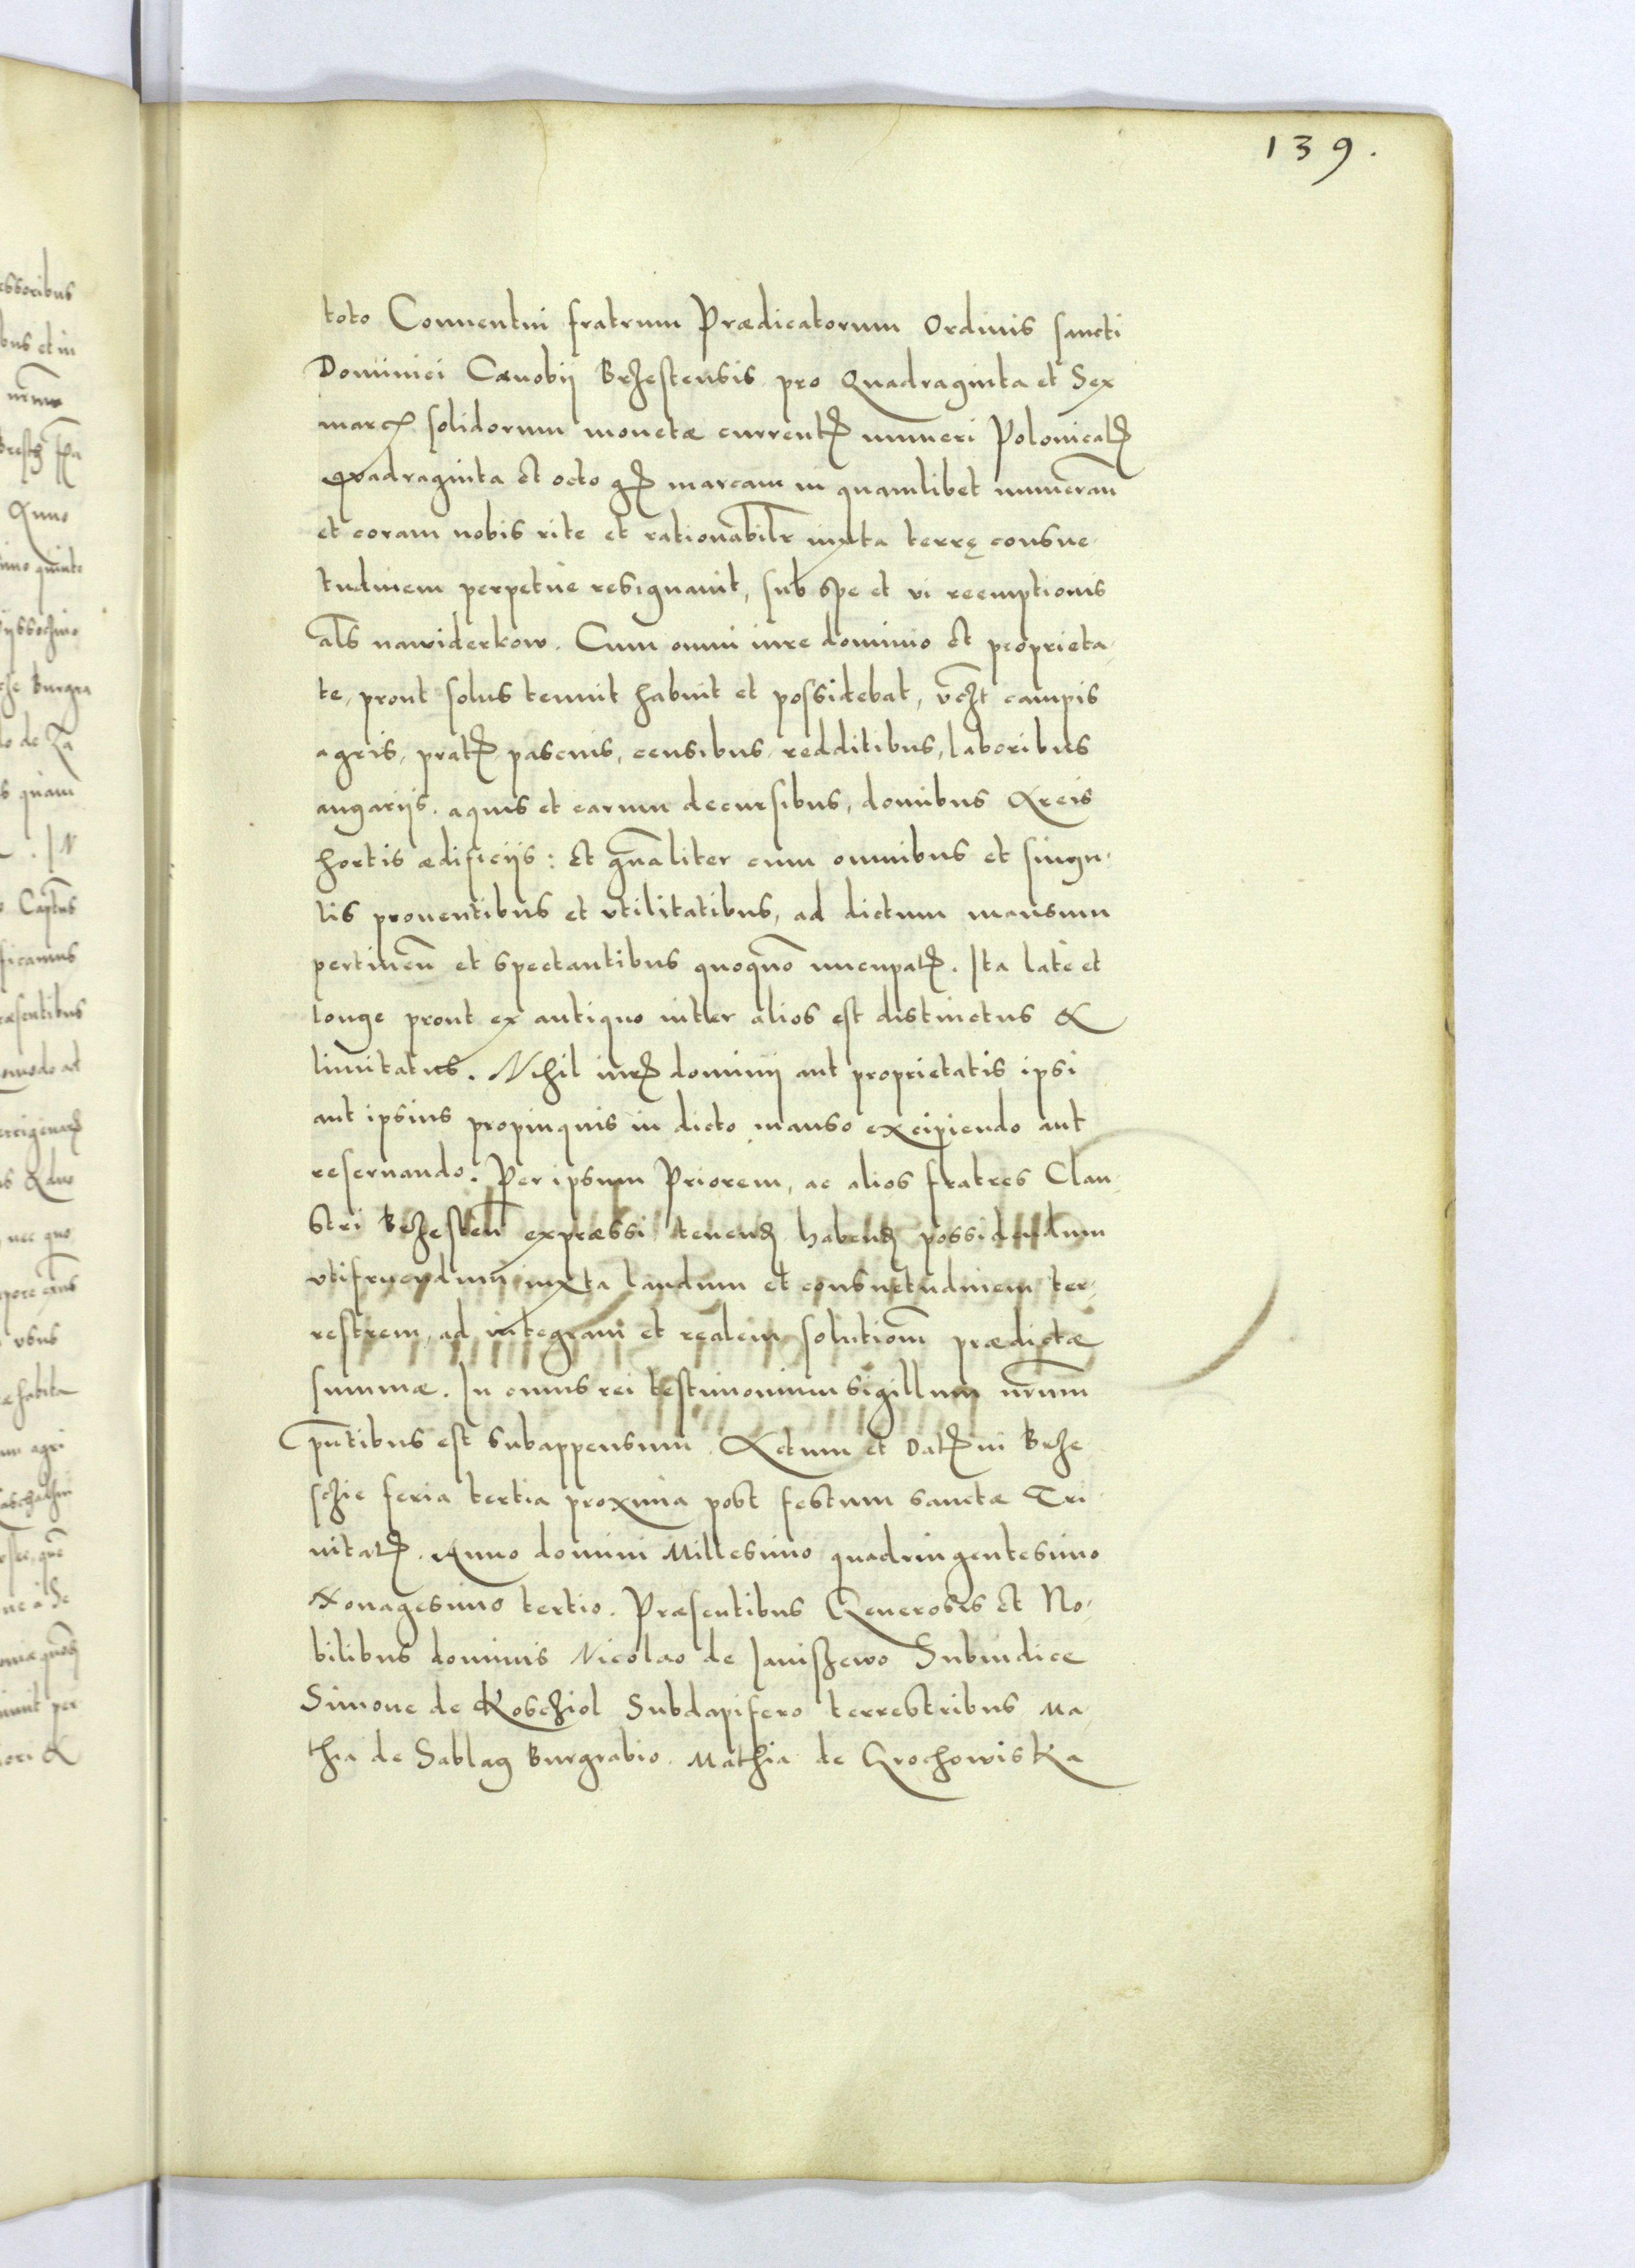 139.
toto Conuentui fratrum Prædicatorum Ordinis sancti
Dominici Cænobij Brzestensis pro Quadraginta et Sex
marcis solidorum monetæ currentis numeri Polonicalis
quadraginta et octo gros marcam in quamlibet numeran̄
et coram nobis rite et rationabilr̄ iuxta terrę consue-
tudinem perpetue resignauit, sub spe et vi reemptionis
al̄s nawiderkow. Cum omni iure dominio et proprieta-
te, prout solus tenuit habuit et possidebat, vc̄zt campis
agris, pratis pascuis, censibus, redditibus, laboribus
angarijs. aquis et earum decursibus, domibus Areis
hortis ædificijs: et gn̄aliter cum omnibus et singu-
lis prouentibus et vtilitatibus, ad dictum mansum
pertinen̄ et spectantibus quoquō nuncupatis. Ita late et
longe prout ex antiquo inter alios est distinctus &
limitatus. Nihil iuris dominij aut proprietatis ipsi
aut ipsius propinquis in dicto manso excipiendo aut
reseruando. Per ipsum Priorem, ac alios fratres Clau-
stri Brzesten̄ expræssi tenend habend possidendum
vtifruendum iuxta laudum et consuetudinem ter-
restrem, ad integram et realem solutiom̄ prædictæ
summæ. In cuius rei testimonium sigillum nr̄um
pn̄tibus est subappensum. Actum et Datum in Brze
schie feria tertia proxima post festum sanctæ Tri
nitatis. Anno domini Millesimo quadringentesimo
Nonagesimo tertio. Præsentibus Generosis et No-
bilibus dominis Nicolao de Janischewo Subiudice
Simone de Koschiol Subdapifero terrestribus Ma-
thia de Sablag Burgrabio. Mathia de Grochowiska